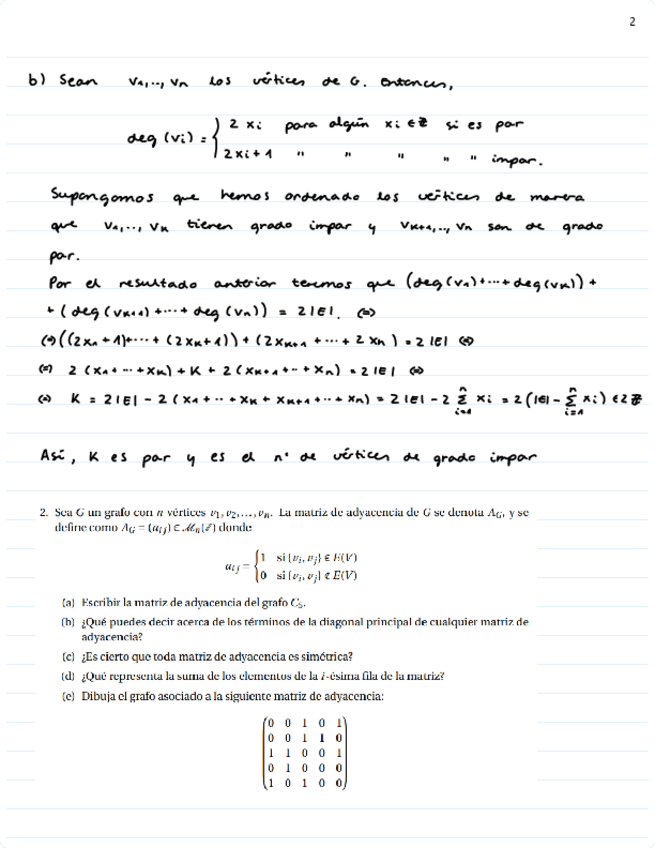 2
b) Sean v₁,.., vₙ los vértices de G. Entonces,
deg (vᵢ) = { 2 xᵢ para algún xᵢ ∈ ℤ si es par
2xᵢ + 1 " " " " " impar.
Supongamos que hemos ordenado los vértices de manera
que v₁,.., vₖ tienen grado impar y vₖ₊₁,.., vₙ son de grado
par.
Por el resultado anterior tenemos que (deg(v₁)+···+deg(vₖ)) +
+ (deg(vₖ₊₁)+···+deg(vₙ)) = 2|E|. (⇔)
(⇔) ((2x₁+1)+···+(2xₖ+1)) + (2xₖ₊₁+···+2xₙ) = 2|E| (⇔)
(⇔) 2(x₁+···+xₖ) + k + 2(xₖ₊₁+···+xₙ) = 2|E| (⇔)
(⇔) k = 2|E| - 2(x₁+··+xₖ+xₖ₊₁+··+xₙ) = 2|E| - 2 ∑ⁿᵢ₌₁ xᵢ = 2(|E| - ∑ⁿᵢ₌₁ xᵢ) ∈ 2ℤ
Así, k es par y es el nº de vértices de grado impar
2. Sea G un grafo con n vértices v₁, v₂,..., vₙ. La matriz de adyacencia de G se denota A_G, y se
define como A_G = (aᵢⱼ) ∈ ℳₙ(ℤ) donde
aᵢⱼ = { 1 si {vᵢ, vⱼ} ∈ E(V)
0 si {vᵢ, vⱼ} ∉ E(V)
(a) Escribir la matriz de adyacencia del grafo C₅.
(b) ¿Qué puedes decir acerca de los términos de la diagonal principal de cualquier matriz de
adyacencia?
(c) ¿Es cierto que toda matriz de adyacencia es simétrica?
(d) ¿Qué representa la suma de los elementos de la i-ésima fila de la matriz?
(e) Dibuja el grafo asociado a la siguiente matriz de adyacencia:
0 0 1 0 1
0 0 1 1 0
1 1 0 0 1
0 1 0 0 0
1 0 1 0 0